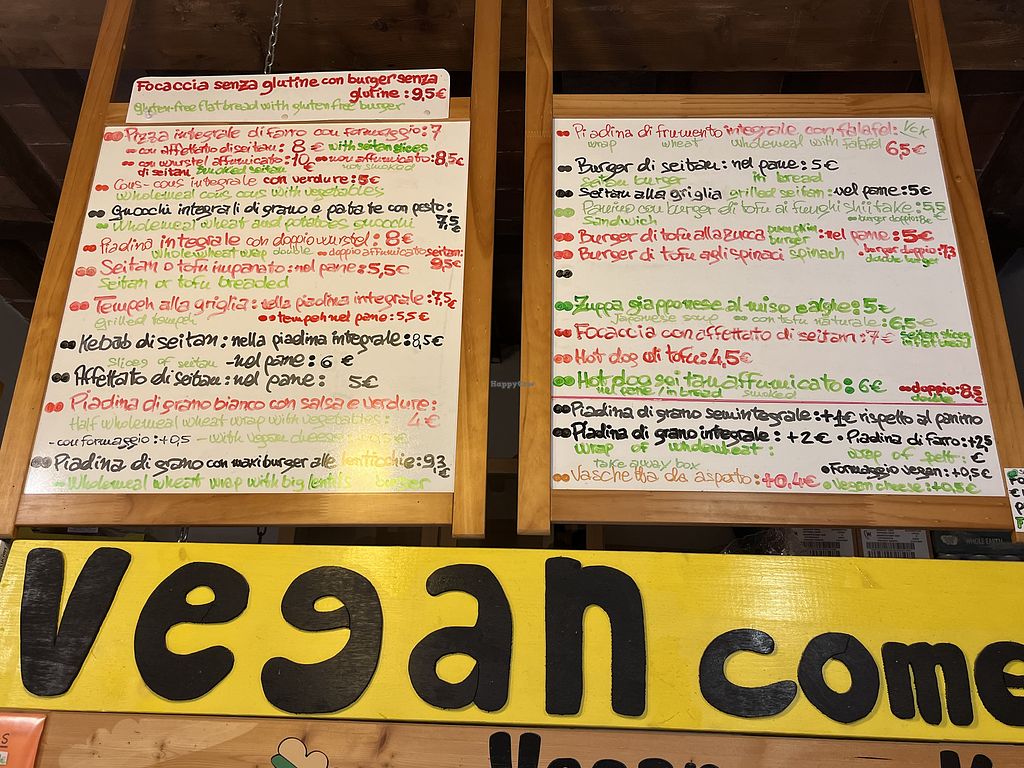 Focaccia senza glutine con burger senza
glutine : 9,5€
Gluten-free flatbread with gluten free burger
Pizza integrale di farro con formaggio : 7
con affettato di seitan : 8 € with seitan slices
con wurstel affumicato : 10 non affumicato : 8,5€
di seitan smoked seitan not smoked
Cous-cous integrale con verdure : 5€
Wholemeal cous cous with vegetables
Gnocchi integrali di grano e patate con pesto :
Wholemeal wheat and potatoes gnocchi 7,5€
Piadina integrale con doppio wurstel : 8€
wholewheat wrap double doppio affumicato seitan :
9,5€
Seitan o tofu impanato : nel pane : 5,5€
Seitan or tofu breaded
Tempeh alla griglia : nella piadina integrale : 7,5€
grilled tempeh tempeh nel pane : 5,5€
Kebab di seitan : nella piadina integrale : 8,5€
slices of seitan - nel pane : 6 €
Affettato di seitan : nel pane : 5€
Piadina di grano bianco con salsa e verdure :
Half wholemeal wheat wrap with vegetables : 4€
- con formaggio : +0,5 - with vegan cheese
Piadina di grano con maxi burger alle lenticchie : 9,3€
Wholemeal wheat wrap with big lentils burger
Piadina di frumento integrale con falafel :
wrap wheat wholemeal with falafel 6,5€
Burger di seitan : nel pane : 5€
seitan burger in bread
Seitan alla griglia grilled seitan : nel pane : 5€
Panino con burger di tofu ai funghi shiitake : 5,5
Sandwich burger doppio : 8€
Burger di tofu alla zucca pumpkin burger : nel pane : 5€
Burger di tofu agli spinaci spinach burger doppio : 7,3
double burger
Zuppa giapponese al miso e alghe : 5€
Japanese soup con tofu naturale : 6,5€
Focaccia con affettato di seitan : 7€ seitan slices
Hot dog di tofu : 4,5€
Hot dog seitan affumicato : 6€ doppio : 8,5
nel pane / in bread smoked double
Piadina di grano semintegrale : +1€ rispetto al panino
Piadina di grano integrale : +2€ • Piadina di farro : +2,5
wrap of wholewheat : wrap of spelt : €
take away box • Formaggio vegan : +0,5€
Vaschetta da asporto : +0,4€ • Vegan cheese : +0,5€
WHOLE EARTH
HappyCow
vegan come
vegan